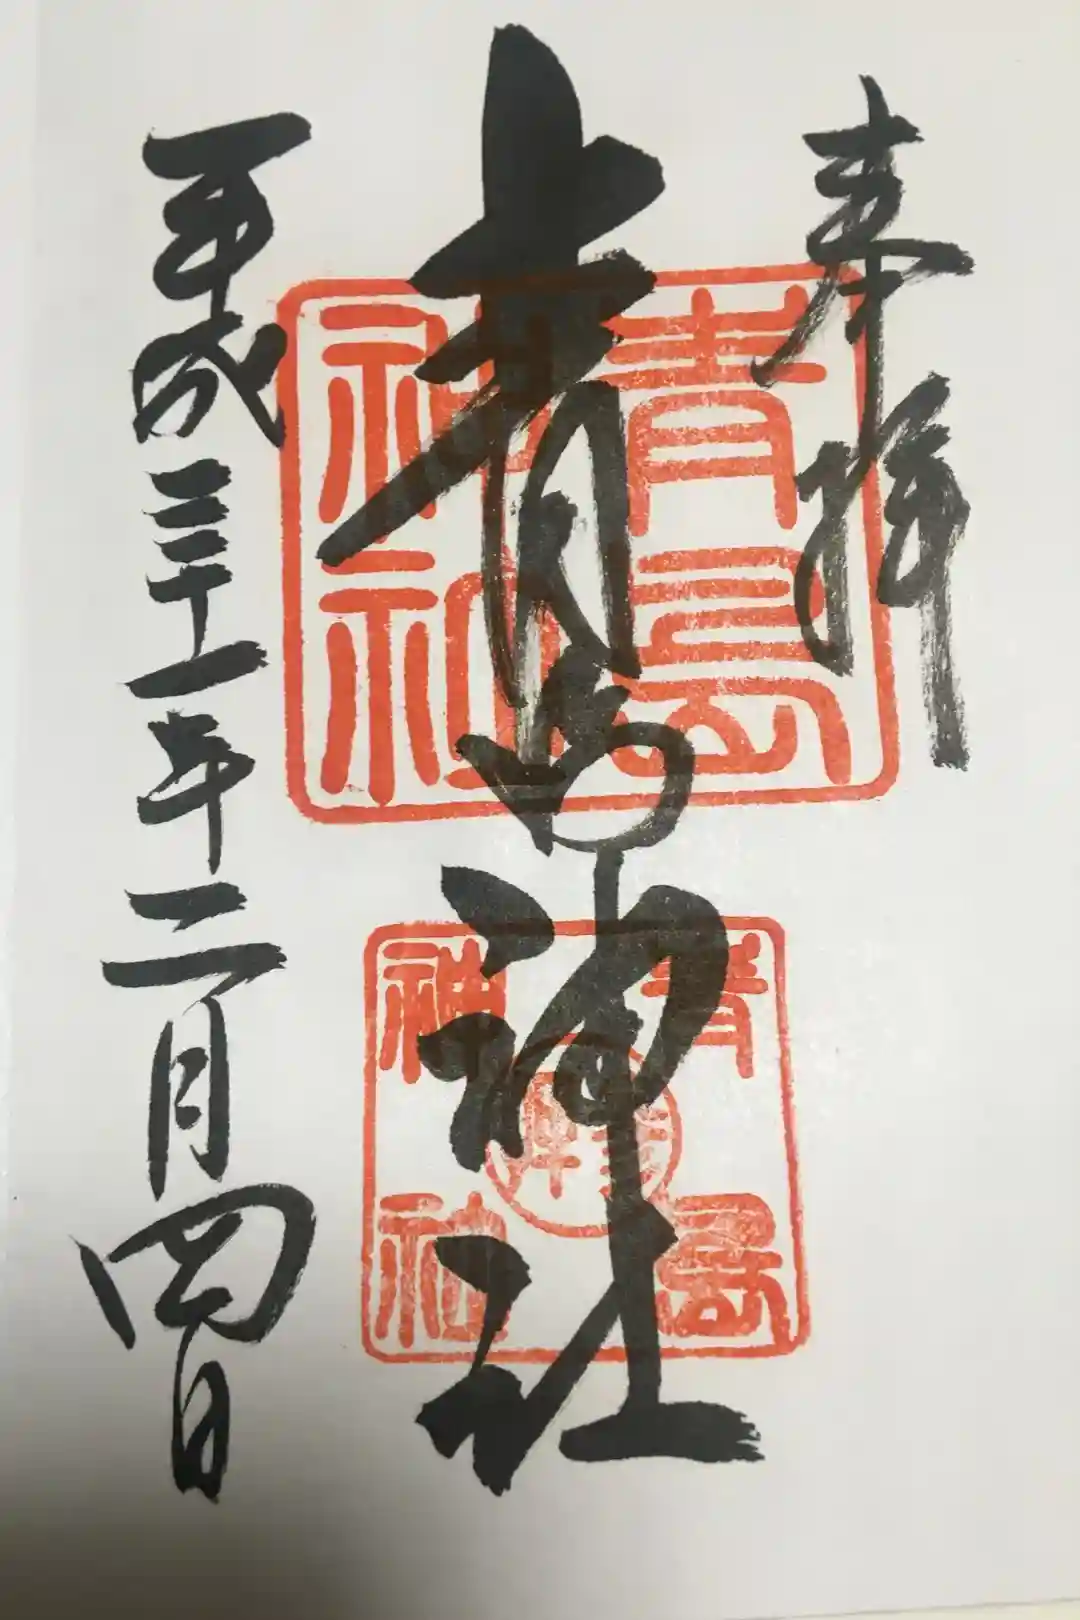 奉拝
青島神社
平成三十一年二月四日
青島
神社
青島
神社